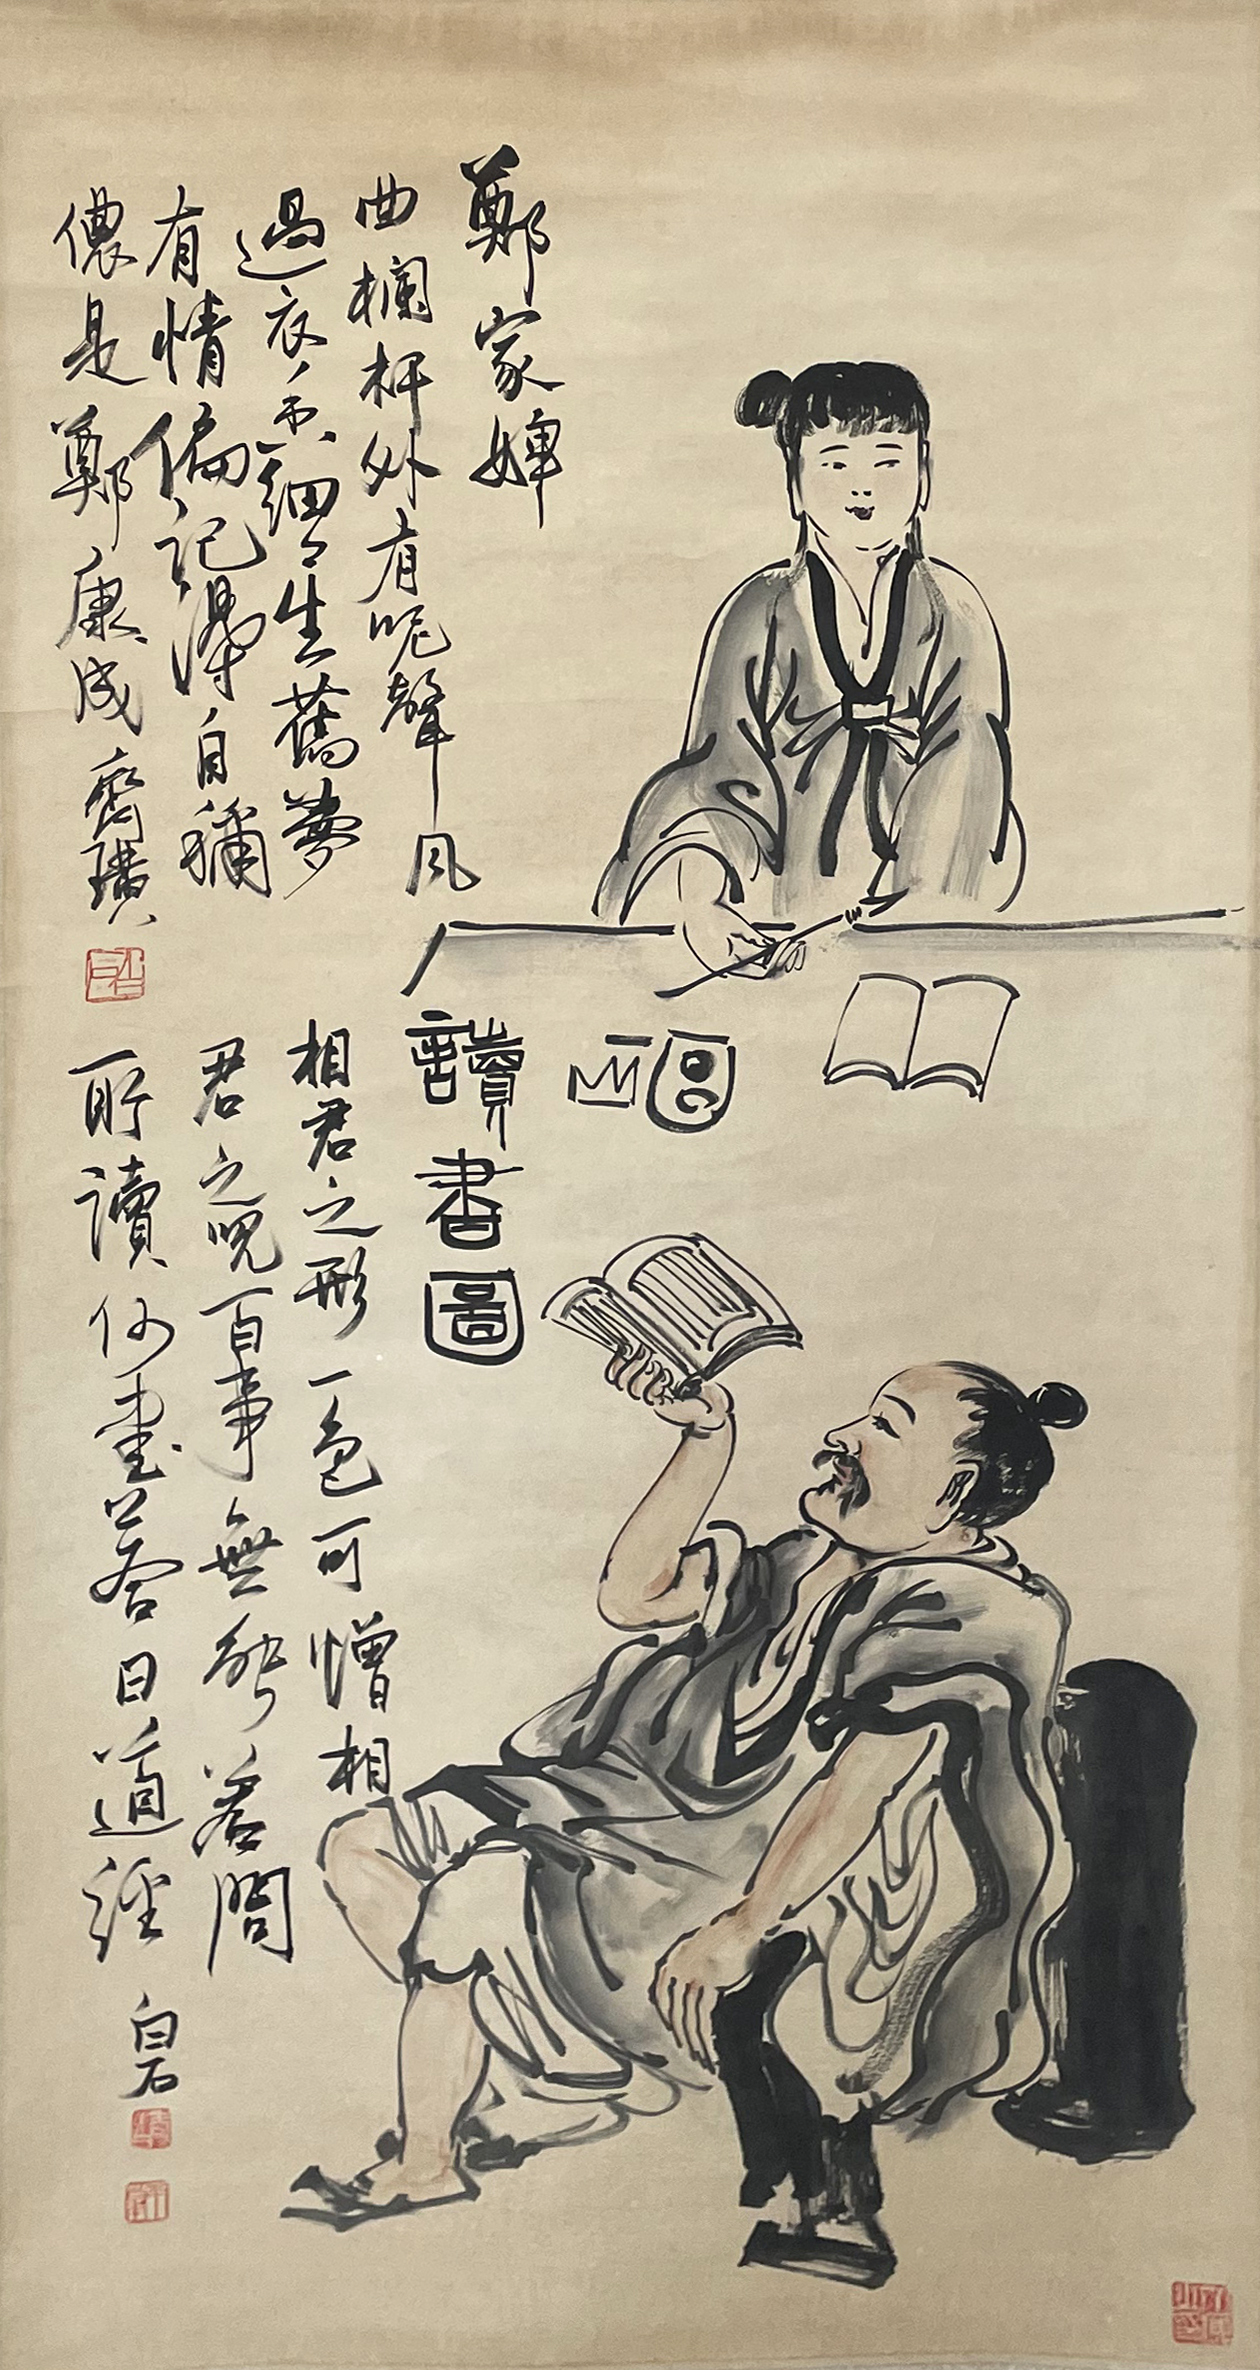 鄭家婢
曲欄杆外有呢聲風
過衣香細細生舊夢
有情偏記得自稱
儂是鄭康成齊璜
人讀書圖
相君之形一色可憎相
君之皃百事無能若問
所讀何書答曰道經
白石